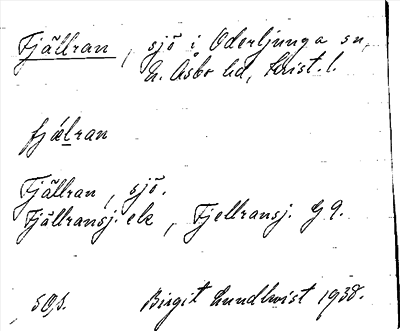 Fjällran, sjö i Oderljunga sn,
N. Åsbo hd, Krist. l.
fjälran
Fjällran, sjö.
Fjällransj. ek, Fjellransj. G 9.
SO,1. Birgit Lundkvist 1938.